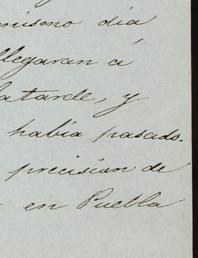 mismo dia
llegaran á
la tarde, y
habia pasado.
precision de
en Puebla